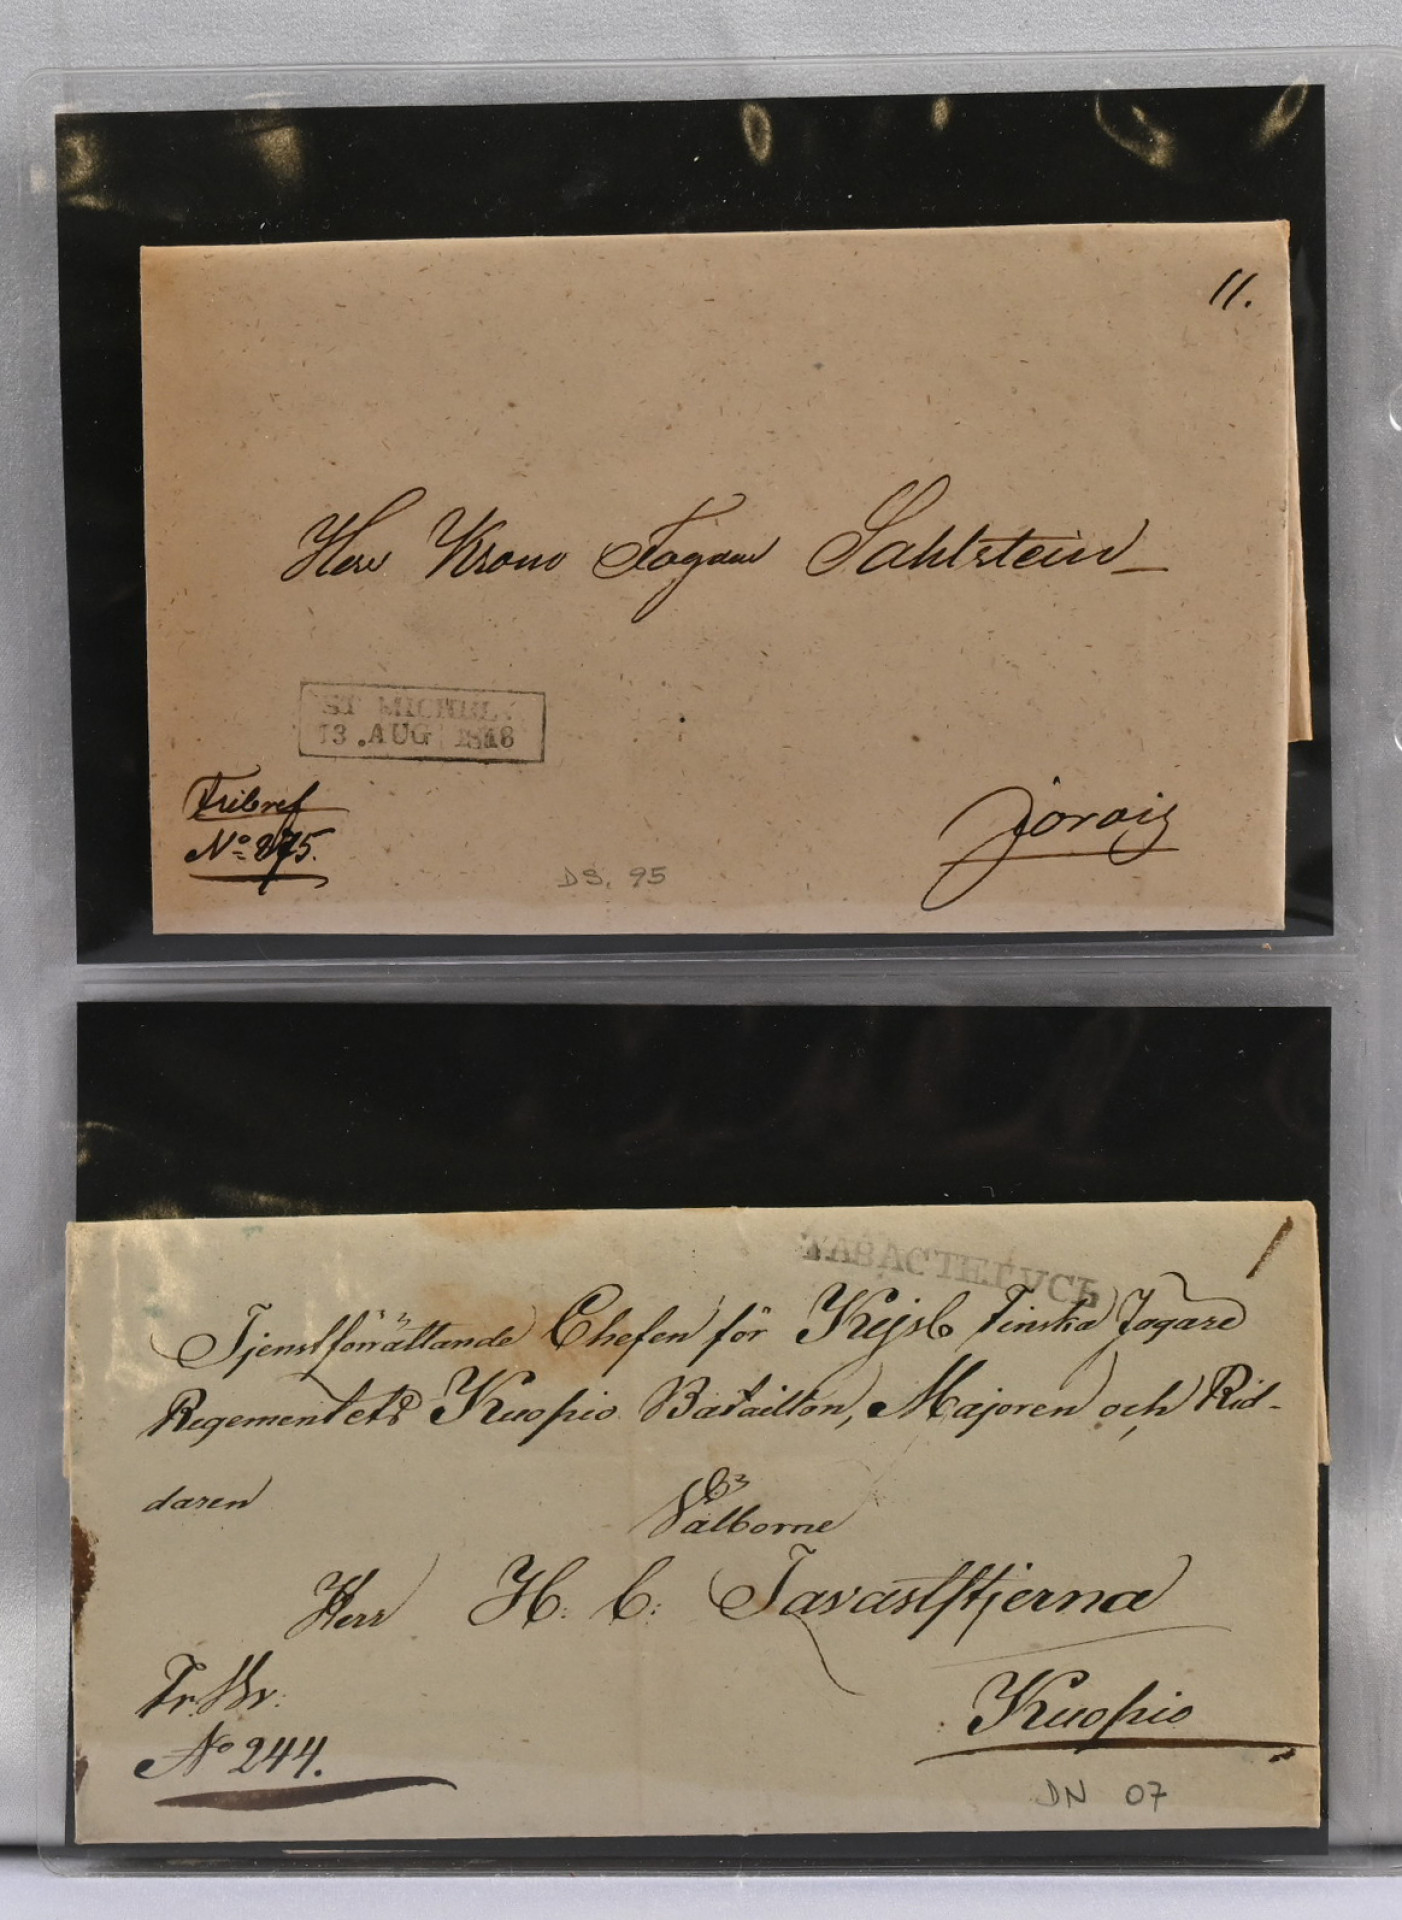 11.
Herr Krono Fogden Sahlstein
ST MICHEL.
13. AUG 1846
Fribref
No 875.
DS. 95
Jorois
ТАВАСТГУСЪ
Tjenstförrättande Chefen för Kejsl Finska Jägare
Regementets Kuopio Bataillon, Majoren och Rid-
daren
Välborne
Herr H: C: Tavaststjerna
Fr. Br:
No 244.
Kuopio
DN 07